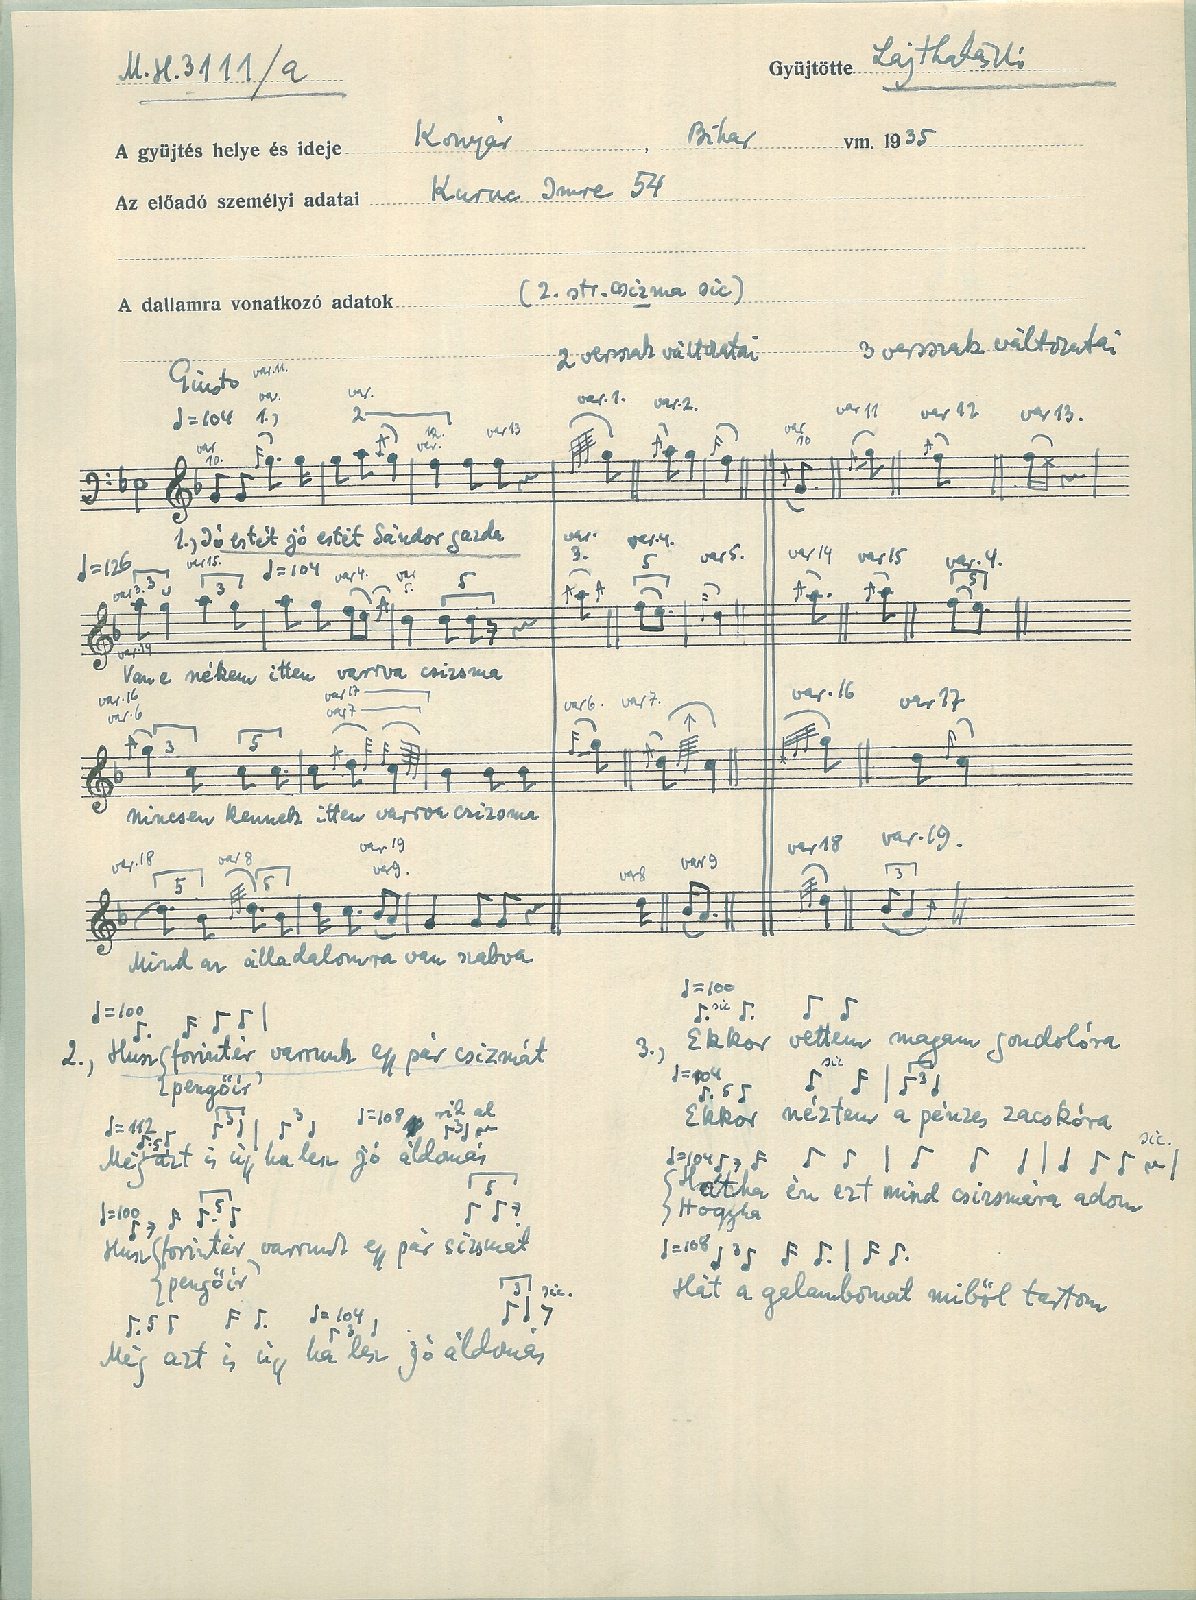 M.H.3111/a
Gyüjtötte Lajtha László
A gyüjtés helye és ideje Konyár, Bihar vm. 1935
Az előadó személyi adatai Kuruc Imre 54
A dallamra vonatkozó adatok (2. str. csizma sic)
2 versszak változatai 3 versszak változatai
Giusto var.11.
♩=104 var. 1., var. 2 var.1. var.2. var 11 var 12 var 13.
var 10. var. 12. var 13 var 10
1., Jó estét jó estét Sándor gazda
♩=126 var 3. 3 var 15. 3 ♩=104 var 4. var 5. 5 var. 3. var.4. 5 var 5. var 14 var 15 var. 4. 5
var.14
Van e nékem itten varrva csizsma
var.16 var 17
var.6 var 7 var 6. var 7. var.16 var 17
3 5
nincsen kennek itten varrva csizsma
var.18 5 var 8 5 var 19 var 9. var 8 var 9 var 18 var.19. 3
Mind az álladalomra van szabva
♩=100
2., Husz {forintér varrunk egy pár csizmát
{pengőír
♩=112 5 3 3 ♩=108 3
Még azt is úgy ha lesz jó áldomás
♩=100 5 5
Husz {forintér varrunk egy pár sizsmát
{pengőír
5 ♩=104 3 3 sic.
Még azt is úgy ha lesz jó áldomás
♩=100
sic
3., Ekkor vettem magam gondolóra
♩=104 5 sic 3
Ekkor néztem a pénzes zacskóra
♩=104 sic.
{Hátha én ezt mind csizsmára adom
{Hogyha
♩=108 3
Hát a galambomat miből tartom